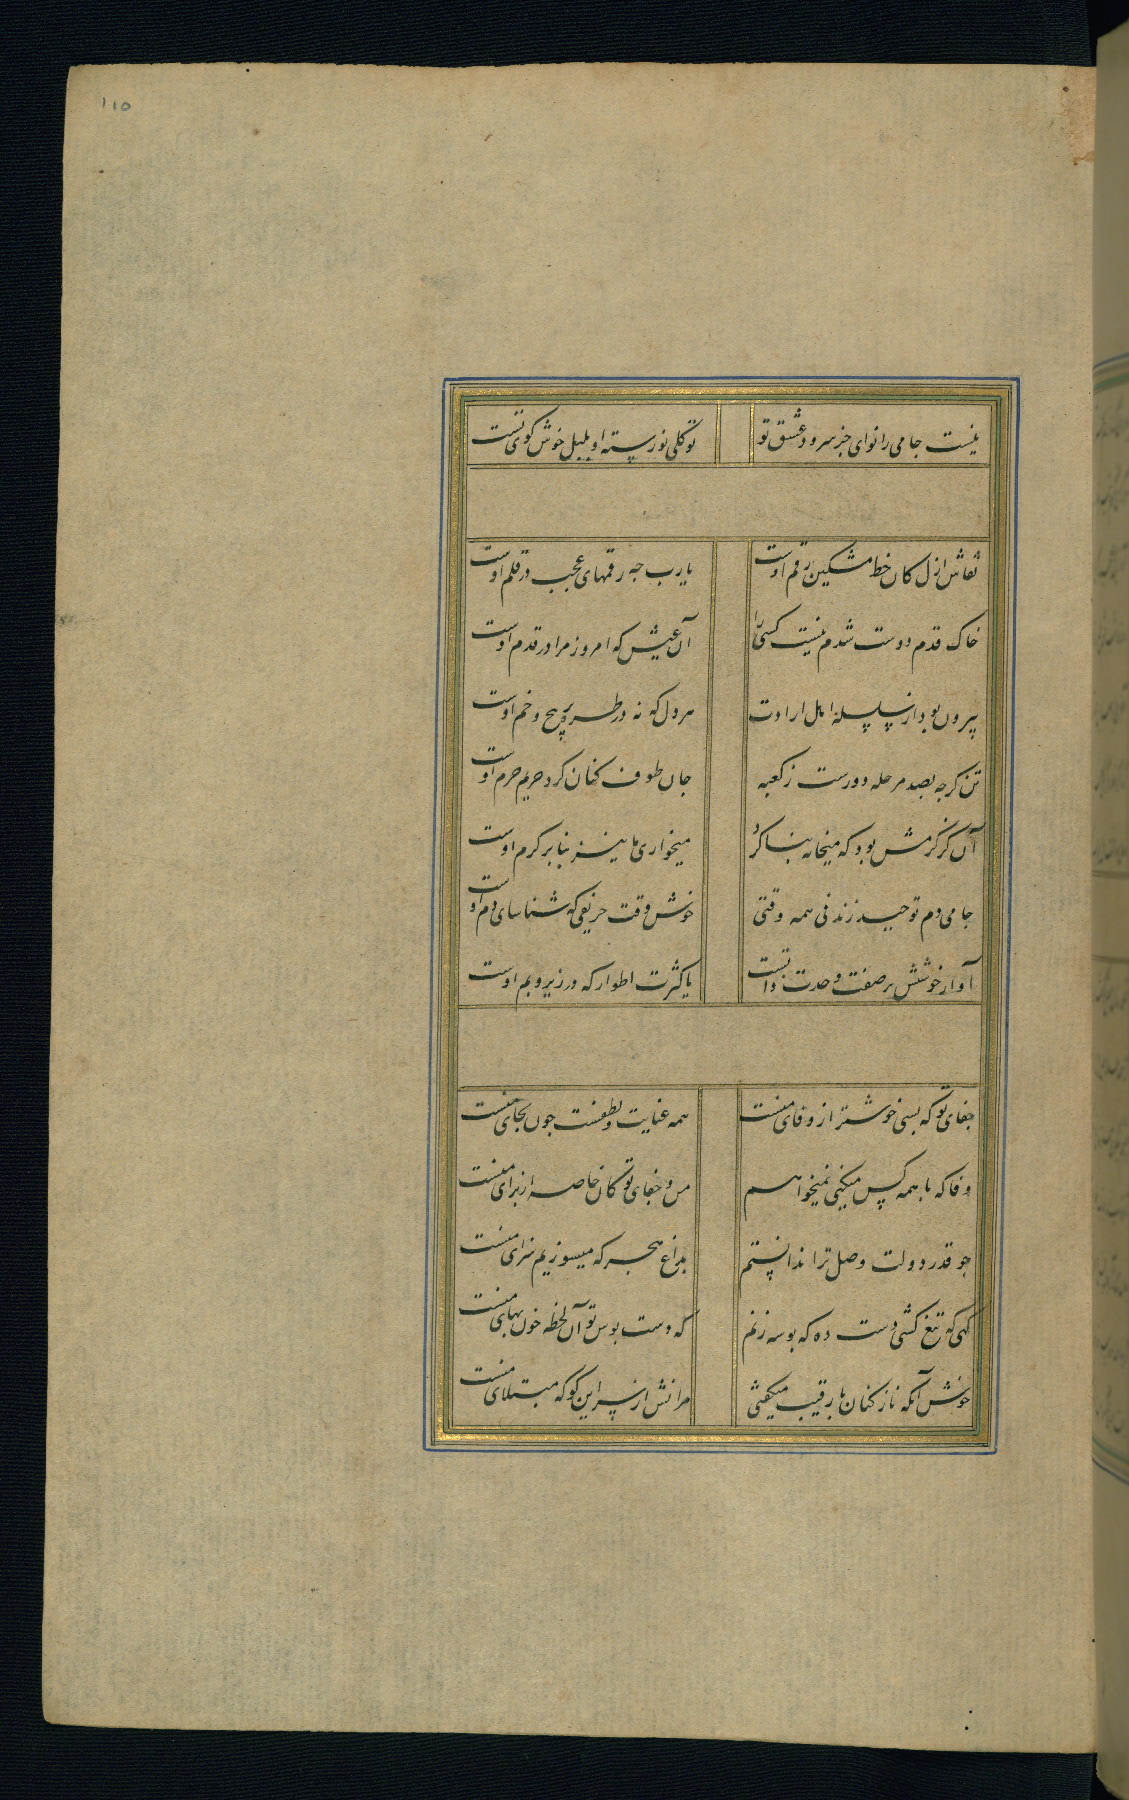 ۱۱۵
نیست جامی را نوای جز سرود عشق تو توکلی نورسته او بلبل خوش کوی تست
نقاش ازل کان خط مشکین رقم اوست یارب چه رقمهای عجب در قلم اوست
خاک قدم دوست شدم نیست کسی را آن عیش که امروز مرا در قدم اوست
بیرون بود از سلسله اهل ارادت هر دل که نه در طره پر پیچ و خم اوست
تن کرچه بصد مرحله دورست ز کعبه جان طوف کنان کرد حریم حرم اوست
آن کز کرمش بود که میخانه بنا کرد میخواری ما نیز بنا بر کرم اوست
جامی دم توحید زند نی همه وقتی خوش وقت حریفی که شناسای دم اوست
آواز خوشش بر صفت وحدت ذاتست با کثرت اطوار که در زیر و بم اوست
جفای تو که بسی خوشتر از وفای منست همه عنایت و لطفست چون بجای منست
وفا که با همه کس میکنی نمیخواهم من و جفای تو کان خاصه از برای منست
چو قدر دولت وصل ترا ندانستم بداغ هجر که میسوزیم سزای منست
کهی که تیغ کشی دست ده که بوسه زنم که دست بوس تو آن لحظه خون بهای منست
خوش آنکه ناز کنان با رقیب میکفتی مرانش از سر این کو که مبتلای منست